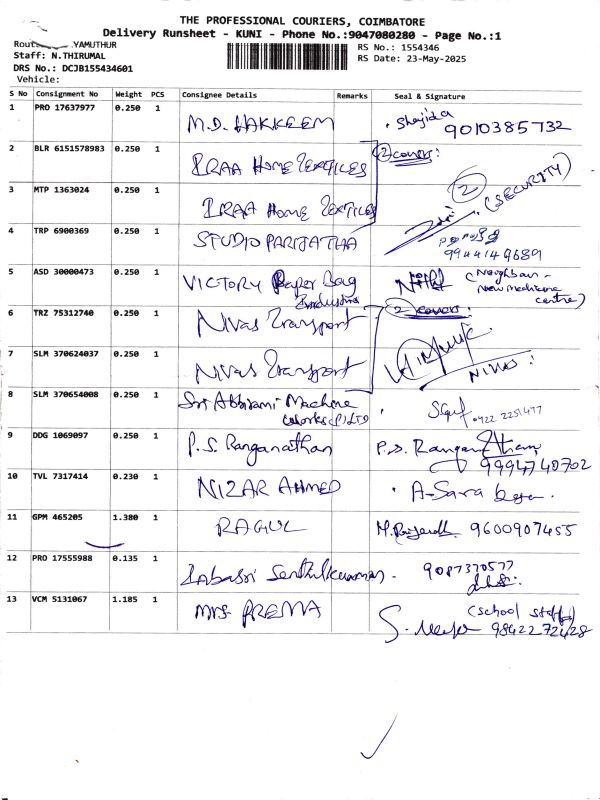 THE PROFESSIONAL COURIERS, COIMBATORE
Delivery Runsheet - KUNI - Phone No.:9047080280 - Page No.:1
YAMUTHUR
RS No.: 1554346
Staff: N.THIRUMAL
RS Date: 23-May-2025
DRS No.: DCJB155434601
Vehicle:
S No Consignment No Weight PCS Consignee Details Remarks Seal & Signature
1 PRO 17637977 0.250 1 M.D. HAKKEEM Shajida 9010385732
2 BLR 6151578983 0.250 1 IRAA Home Textiles 2 covers:
3 MTP 1363024 0.250 1 IRAA Home Textiles 2 (SECURITY)
4 TRP 6900369 0.250 1 STUDIO PARIJATHAA 9944149689
5 ASD 30000473 0.250 1 VICTORY Paper Bag Industries (Neighbour - New medicine centre)
6 TRZ 75312740 0.250 1 Nivas Transport 2 covers
7 SLM 370624037 0.250 1 Nivas Transport NIVAS:
8 SLM 370654008 0.250 1 Sri Abbirami Machine Works (P) LTD 0422 2251477
9 DDG 1069097 0.250 1 P.S. Ranganathan P.S. Ranganathan 9994740702
10 TVL 7317414 0.230 1 NIZAR AHMED
11 GPM 465205 1.380 1 RAGUL 9600907455
12 PRO 17555988 0.135 1 Senthilkumar 9087370577
13 VCM 5131067 1.185 1 Mrs PREMA (School staff) 9842272428